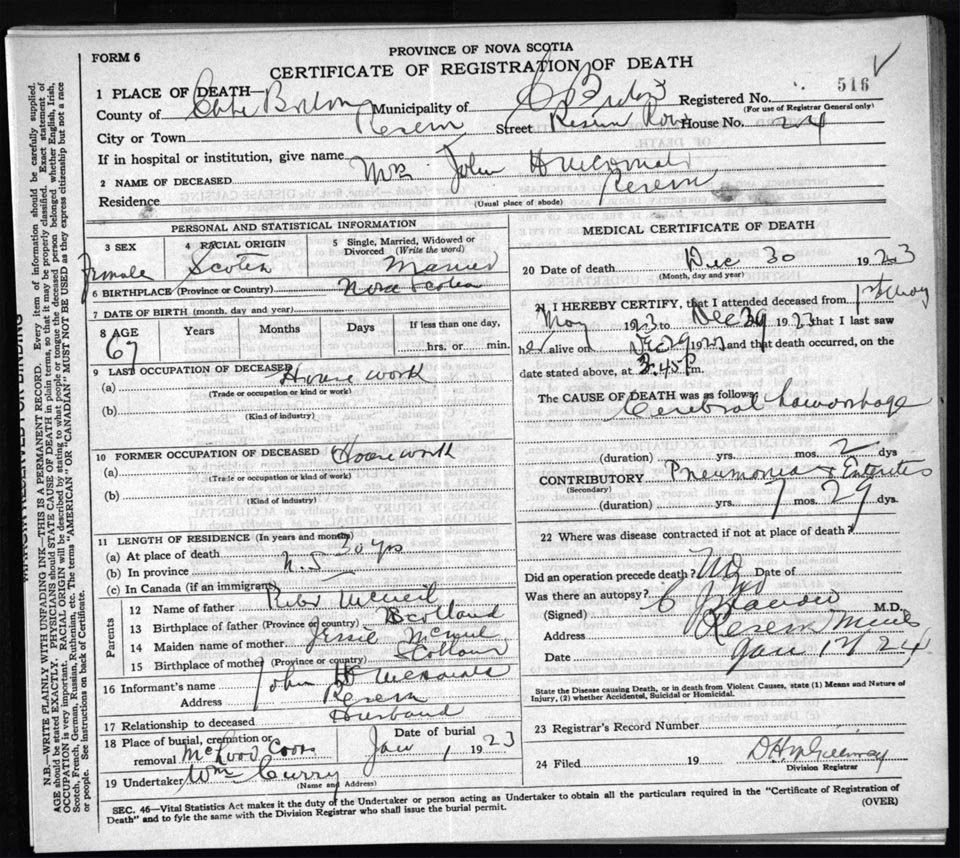 PROVINCE OF NOVA SCOTIA
FORM 6
CERTIFICATE OF REGISTRATION OF DEATH
516
1 PLACE OF DEATH—
County of Cape Breton Municipality of C Breton Registered No.
(For use of Registrar General only)
City or Town Reserve Street Reserve Rows House No. 24
If in hospital or institution, give name
2 NAME OF DECEASED Mrs John H McDonald
Residence Reserve
(Usual place of abode)
PERSONAL AND STATISTICAL INFORMATION
3 SEX 4 RACIAL ORIGIN 5 Single, Married, Widowed or Divorced (Write the word)
Female Scotch Married
6 BIRTHPLACE (Province or Country) Nova Scotia
7 DATE OF BIRTH (month, day and year)
8 AGE Years Months Days If less than one day,
67 hrs. or min.
9 LAST OCCUPATION OF DECEASED
(a) House work
(Trade or occupation or kind or work)
(b)
(Kind of industry)
10 FORMER OCCUPATION OF DECEASED House work
(a)
(Trade or occupation or kind of work)
(b)
(Kind of industry)
11 LENGTH OF RESIDENCE (In years and months)
(a) At place of death 30 yrs
(b) In province N.S
(c) In Canada (if an immigrant)
Parents
12 Name of father McNeil
13 Birthplace of father (Province or country) Scotland
14 Maiden name of mother Jessie McNeil
15 Birthplace of mother (Province or country) Scotland
16 Informant's name John H McDonald
Address Reserve
17 Relationship to deceased Husband
18 Place of burial, cremation or removal Date of burial
Jan 1, 1923
19 Undertaker Wm Curry
(Name and Address)
MEDICAL CERTIFICATE OF DEATH
20 Date of death Dec 30 1923
(Month, day and year)
21 I HEREBY CERTIFY, that I attended deceased from
May 1923 to Dec 30 1923 that I last saw
her alive on Dec 29 1923 and that death occurred, on the
date stated above, at 3.45 P m.
The CAUSE OF DEATH was as follows:
Cerebral haemorrhage
(duration) yrs. mos. 2 dys.
CONTRIBUTORY Pneumonia & Enteritis
(Secondary)
(duration) yrs. mos. 29 dys.
22 Where was disease contracted if not at place of death?
Did an operation precede death? No Date of
Was there an autopsy? No
(Signed) M.D.
Address Reserve Mines
Date Jan 1st 24
State the Disease causing Death, or in death from Violent Causes, state (1) Means and Nature of
Injury, (2) whether Accidental, Suicidal or Homicidal.
23 Registrar's Record Number
24 Filed 19
Division Registrar
SEC. 46—Vital Statistics Act makes it the duty of the Undertaker or person acting as Undertaker to obtain all the particulars required in the "Certificate of Registration of
Death" and to fyle the same with the Division Registrar who shall issue the burial permit.
(OVER)
MARGIN RESERVED FOR BINDING
N.B.—WRITE PLAINLY WITH UNFADING INK—THIS IS A PERMANENT RECORD. Every item of information should be carefully supplied.
AGE should be stated EXACTLY. PHYSICIANS should STATE CAUSE OF DEATH in plain terms, so that it may be properly classified. Exact statement of
OCCUPATION is very important. RACIAL ORIGIN will be described by stating to what people or tongue the deceased person belonged whether English, Irish,
Scotch, French, German, Russian, Ruthenian, etc. The terms "AMERICAN" OR "CANADIAN" MUST NOT BE USED as they express citizenship but not a race
or people. See instructions on back of Certificate.